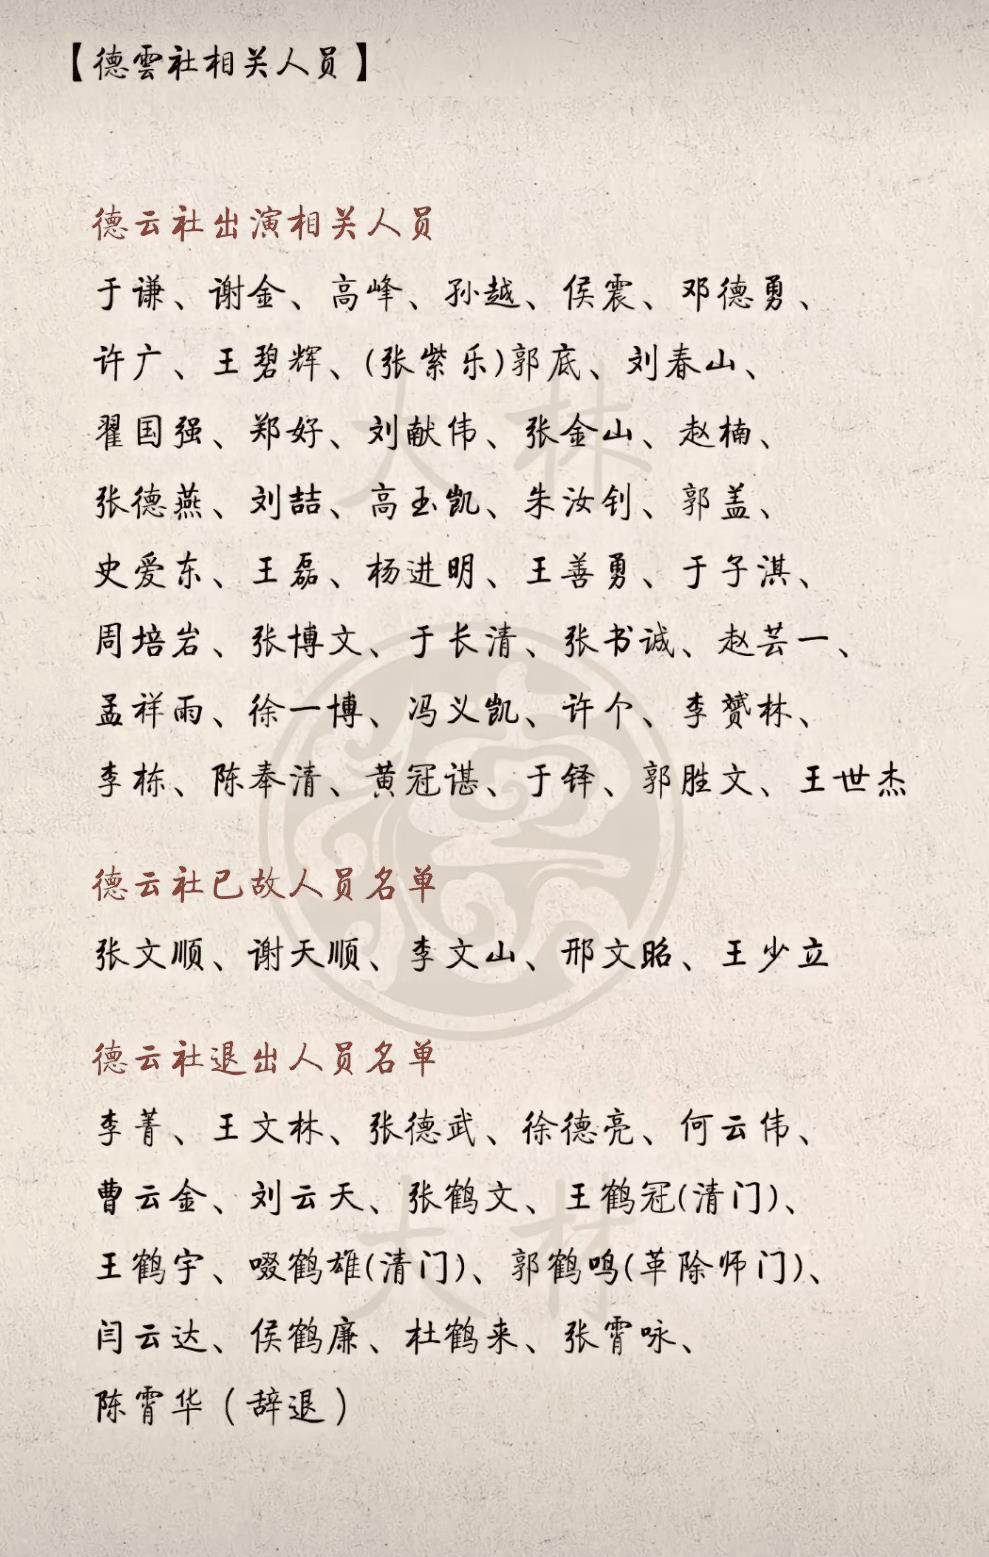 【德雲社相关人员】
德云社出演相关人员
于谦、谢金、高峰、孙越、侯震、邓德勇、
许广、王碧辉、(张紫乐)郭底、刘春山、
翟国强、郑好、刘献伟、张金山、赵楠、
张德燕、刘喆、高玉凯、朱汝钊、郭盖、
史爱东、王磊、杨进明、王善勇、于子淇、
周培岩、张博文、于长清、张书诚、赵芸一、
孟祥雨、徐一博、冯义凯、许个、李赟林、
李栋、陈奉清、黄冠谌、于铎、郭胜文、王世杰
德云社已故人员名单
张文顺、谢天顺、李文山、邢文昭、王少立
德云社退出人员名单
李菁、王文林、张德武、徐德亮、何云伟、
曹云金、刘云天、张鹤文、王鹤冠(清门)、
王鹤宇、啜鹤雄(清门)、郭鹤鸣(革除师门)、
闫云达、侯鹤廉、杜鹤来、张霄咏、
陈霄华（辞退）
大林
德
大林